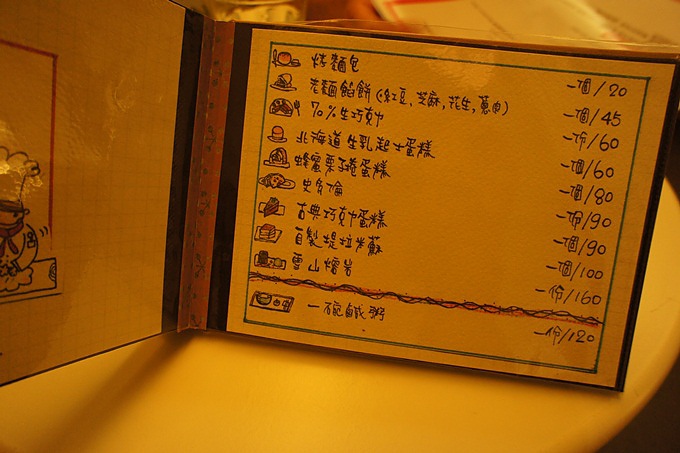 烤麵包 一個/20
老麵餡餅(紅豆,芝麻,花生,蔥肉) 一個/45
70%生巧克力 一份/60
北海道生乳起士蛋糕 一個/60
蜂蜜栗子捲蛋糕 一個/80
史多倫 一份/90
古典巧克力蛋糕 一個/90
自製提拉米蘇 一個/100
雪山熔岩 一份/160
一碗鹹粥 一份/120